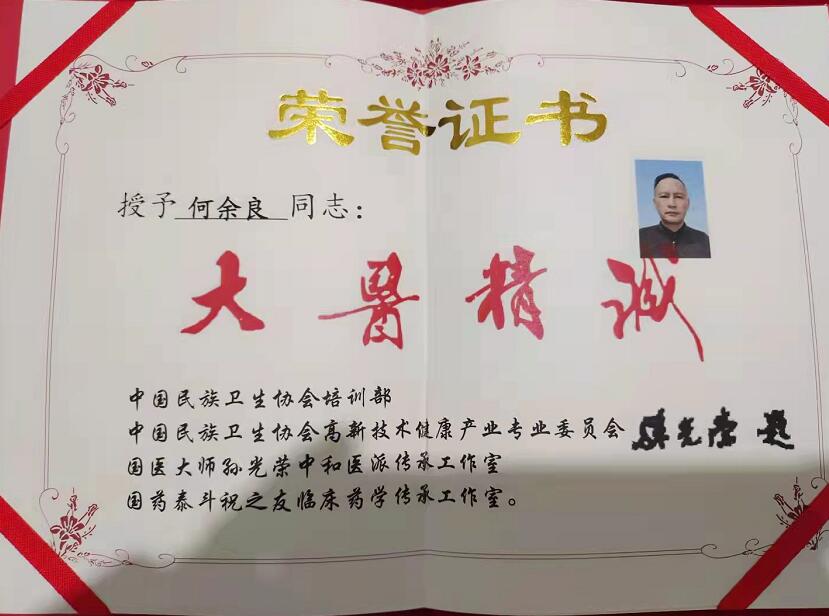 荣誉证书
授予 何余良 同志：
大醫精诚
中国民族卫生协会培训部
中国民族卫生协会高新技术健康产业专业委员会
孙光荣 题
国医大师孙光荣中和医派传承工作室
国药泰斗祝之友临床药学传承工作室。